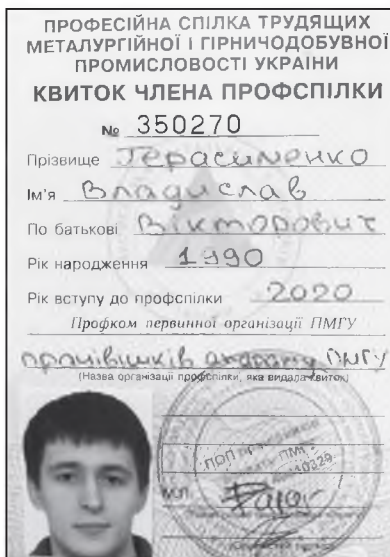 ПРОФЕСІЙНА СПІЛКА ТРУДЯЩИХ
МЕТАЛУРГІЙНОЇ І ГІРНИЧОДОБУВНОЇ
ПРОМИСЛОВОСТІ УКРАЇНИ
КВИТОК ЧЛЕНА ПРОФСПІЛКИ
№ 350270
Прізвище Герасименко
Ім'я Владислав
По батькові Вікторович
Рік народження 1990
Рік вступу до профспілки 2020
Профком первинної організації ПМГУ
працівників апарату ПМГУ
(Назва організації профспілки, яка видала квиток)
ПОП працівників
апарату ПМГУ
М.П.